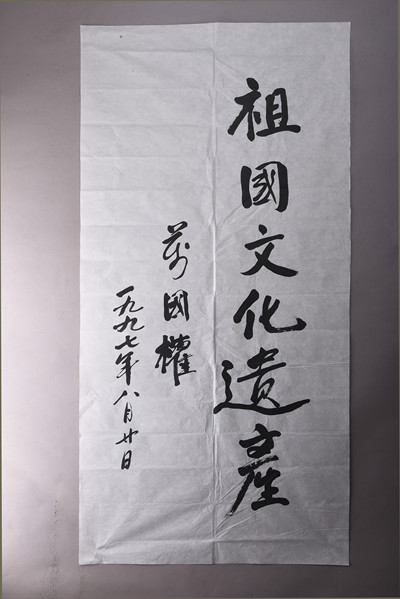 祖國文化遺產
萬國權
一九九七年八月廿日